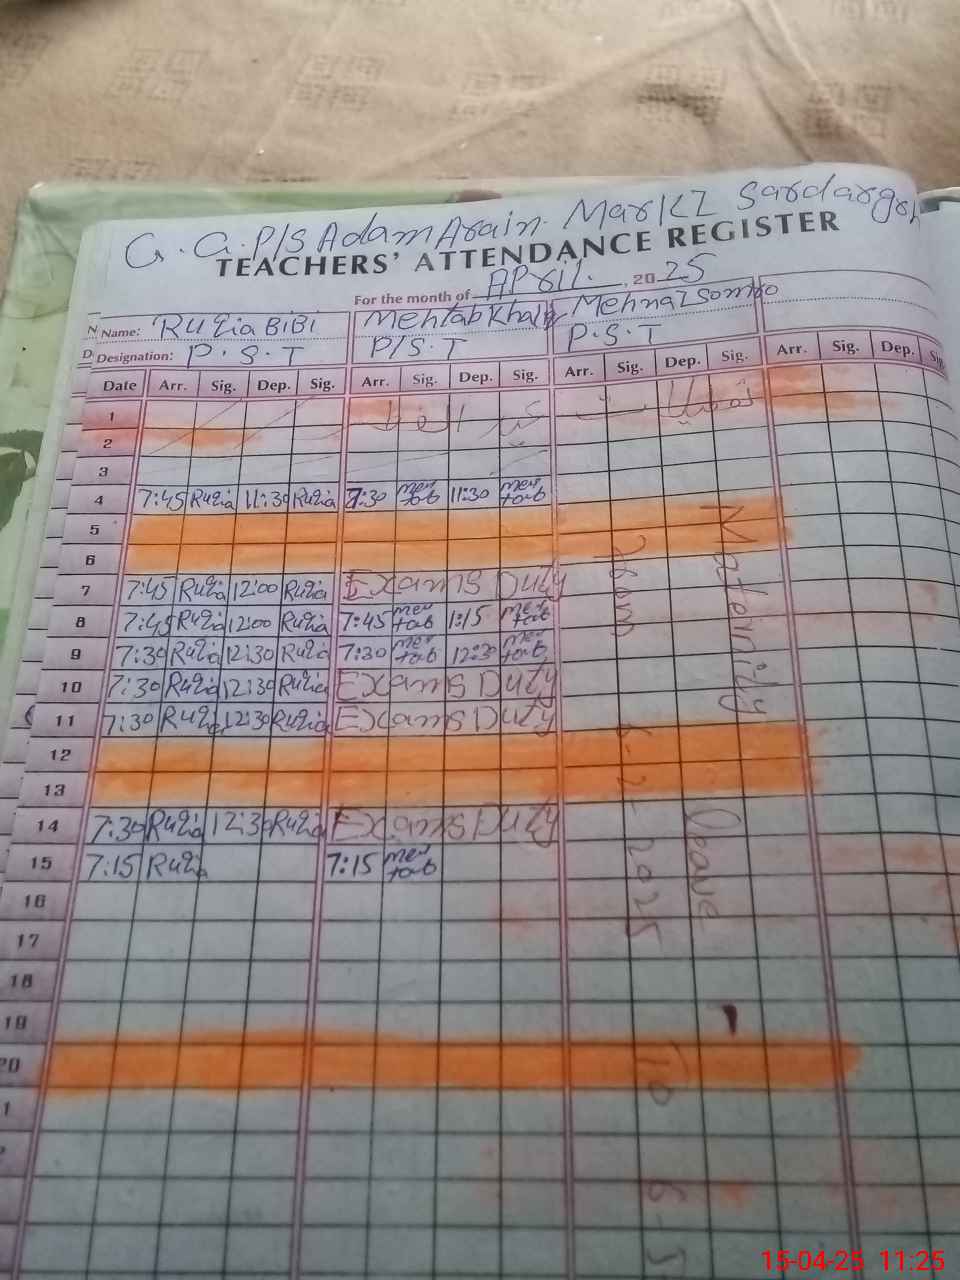 G.G.P/S Adam Arain. Markz Sardargrh
TEACHERS' ATTENDANCE REGISTER
For the month of April. , 20 25
Name: Ruqia BiBi Mehtab Mehnaz Somro
Designation: P.S.T P/S.T P.S.T
Date Arr. Sig. Dep. Sig. Arr. Sig. Dep. Sig. Arr. Sig. Dep. Sig. Arr. Sig. Dep.
1 عید الفطر تعطیلات
2
3
4 7:45 Ruqia 11:30 Ruqia 7:30 meh tab 11:30 meh tab
5
6
7 7:45 Ruqia 12:00 Ruqia Exams Duty
8 7:45 Ruqia 12:00 Ruqia 7:45 meh tab 1:15 meh tab
9 7:30 Ruqia 12:30 Ruqia 7:30 meh tab 12:30 meh tab
10 7:30 Ruqia 12:30 Ruqia Exams Duty
11 7:30 Ruqia 12:30 Ruqia Exams Duty
12
13
14 7:30 Ruqia 12:30 Ruqia Exams Duty
15 7:15 Ruqia 7:15 meh tab
16
17
18
19
20
Materinity Leave
From 6-2-2025 To 6-5
15-04-25 11:25